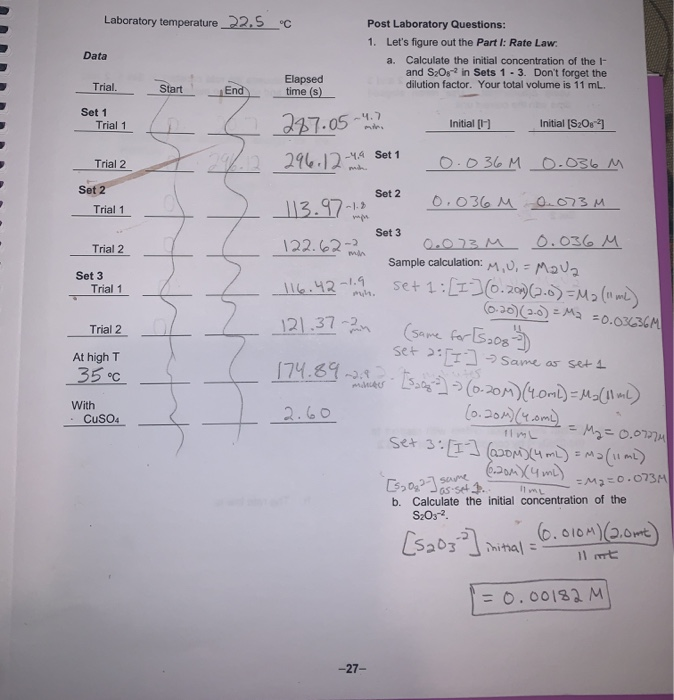 Laboratory temperature 22.5 °C
Data
Trial. Start End Elapsed time (s)
Set 1
Trial 1 287.05 -4.7 min.
Trial 2 296.12 296.12 -4.9 min
Set 2
Trial 1 113.97 -1.8 min
Trial 2 122.62 -2 min
Set 3
Trial 1 116.42 -1.9 min.
Trial 2 121.37 -2 min
At high T
35 °C 174.89 -2.9 minutes
With
CuSO₄ 2.60
Post Laboratory Questions:
1. Let's figure out the Part I: Rate Law.
a. Calculate the initial concentration of the I-
and S₂O₈⁻² in Sets 1 - 3. Don't forget the
dilution factor. Your total volume is 11 mL.
Initial [I-] Initial [S₂O₈⁻²]
Set 1 0.036 M 0.036 M
Set 2 0.036 M 0.073 M
Set 3 0.073 M 0.036 M
Sample calculation: M₁V₁ = M₂V₂
Set 1: [I⁻] (0.20M)(2.0) = M₂ (11 mL)
(0.20)(2.0) / 11 = M₂ = 0.03636M
(same for [S₂O8⁻²])
Set 2: [I⁻] → same as set 1
[S₂O₈⁻²] → (0.20M)(4.0mL) = M₂(11mL)
(0.20M)(4.0mL) / 11mL = M₂ = 0.0727M
Set 3: [I⁻] (0.20M)(4mL) = M₂(11mL)
(0.20M)(4mL) / 11mL = M₂ = 0.073M
[S₂O₈²⁻] same as set 1.
b. Calculate the initial concentration of the
S₂O₃⁻².
[S₂O₃⁻²] initial = (0.010M)(2.0mL) / 11 mL
= 0.00182 M
-27-